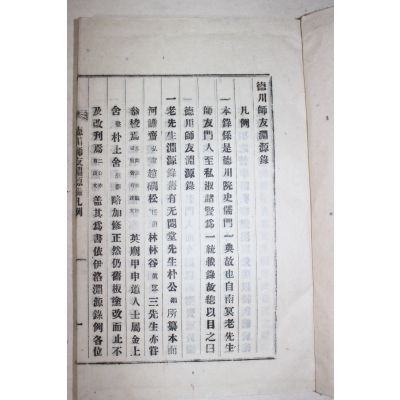 德川師友淵源錄
凡例
一本錄係是德川院史儒門一典故也自南冥老先生
師友門人至私淑諸賢爲一統載錄故總以目之曰
德川師友淵源錄
一老先生淵源錄舊有无悶堂先生朴公 所纂本而
河謙齋 趙 松 林林谷 三先生亦嘗
叅校焉 英廟甲申道人士屬金上
舍 朴上舍 略加修正然仍舊板塗改而止不
及改刋焉 盖其爲書依伊洛淵源錄例各位
德川師友淵源錄凡例
一